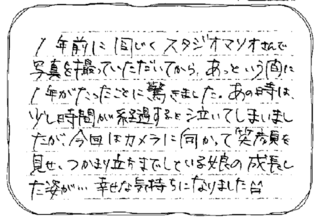 1年前に同じくスタジオマリオさんで
写真を撮っていただいてから、あっという間に
1年がたったことに驚きました。あの時は
少し時間が経過すると泣いてしまいまし
たが、今回はカメラに向かって笑顔を
見せ、つかまり立ちまでしている娘の成長し
た姿が… 幸せな気持ちになりました